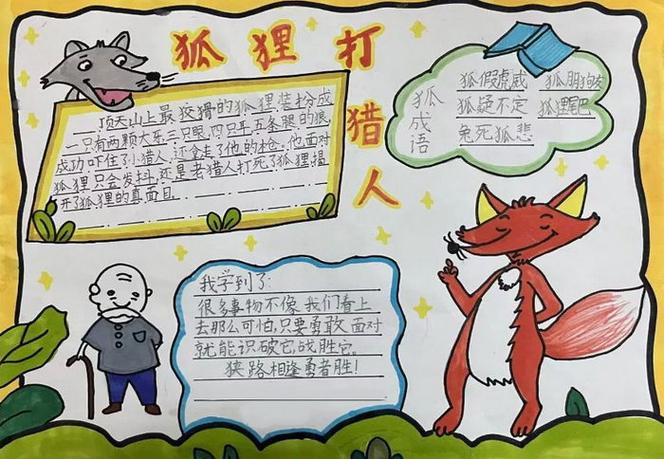 狐狸打猎人
顶天山上最狡猾的狐狸装扮成
一只有两颗大东三只眼,四只耳五条腿的狼
成功吓住了小猎人,还拿走了他的枪,他面对
狐狸只会发抖,还是老猎人打死了狐狸揭
开了狐狸的真面目.
狐成语
狐假虎威 狐朋狗友
狐疑不定 狐狸
兔死狐悲
我学到了:
很多事物不像我们看上
去那么可怕,只要勇敢面对
就能识破它,战胜它。
狭路相逢勇者胜!